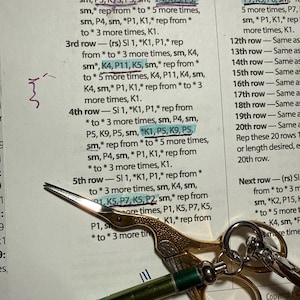 sm, P4, sm, *P1, K1,* rep from *
to * 3 more times, K1.
3rd row — (rs) Sl 1, *K1, P1,* rep
from * to * 3 more times, K4, sm, K4,
sm,* K4, P11, K5, sm,* rep from *
to * 5 more times, K4, P11, K4, sm,
K4, sm, *P1, K1,* rep from * to * 3
more times, K1.
4th row — Sl 1, *K1, P1,* rep from
* to * 3 more times, sm, P4, sm,
P5, K9, P5, sm, *K1, P5, K9, P5,
sm,* rep from * to * 5 more times,
sm, P4, sm, * P1, K1,* rep from
* to * 3 more times, K1.
5th row — Sl 1, *K1, P1,* rep from
* to * 3 more times, sm, K4, sm,
P1, K5, P7, K5, P2,
more times, P1, K5, P7, K5,
P1, K1,* rep from
* to * 3 more times, K1.
12th row — Same as
13th row — Same as
14th row — Same a
15th row — Same a
16th row — Same a
17th row — Same a
18th row — Same a
19th row — Same a
20th row — Same a
Rep these 20 rows 1
or length desired, e
20th row.
Next row — (rs) Sl
from * to * 3 more
sm, *K2, P15, K